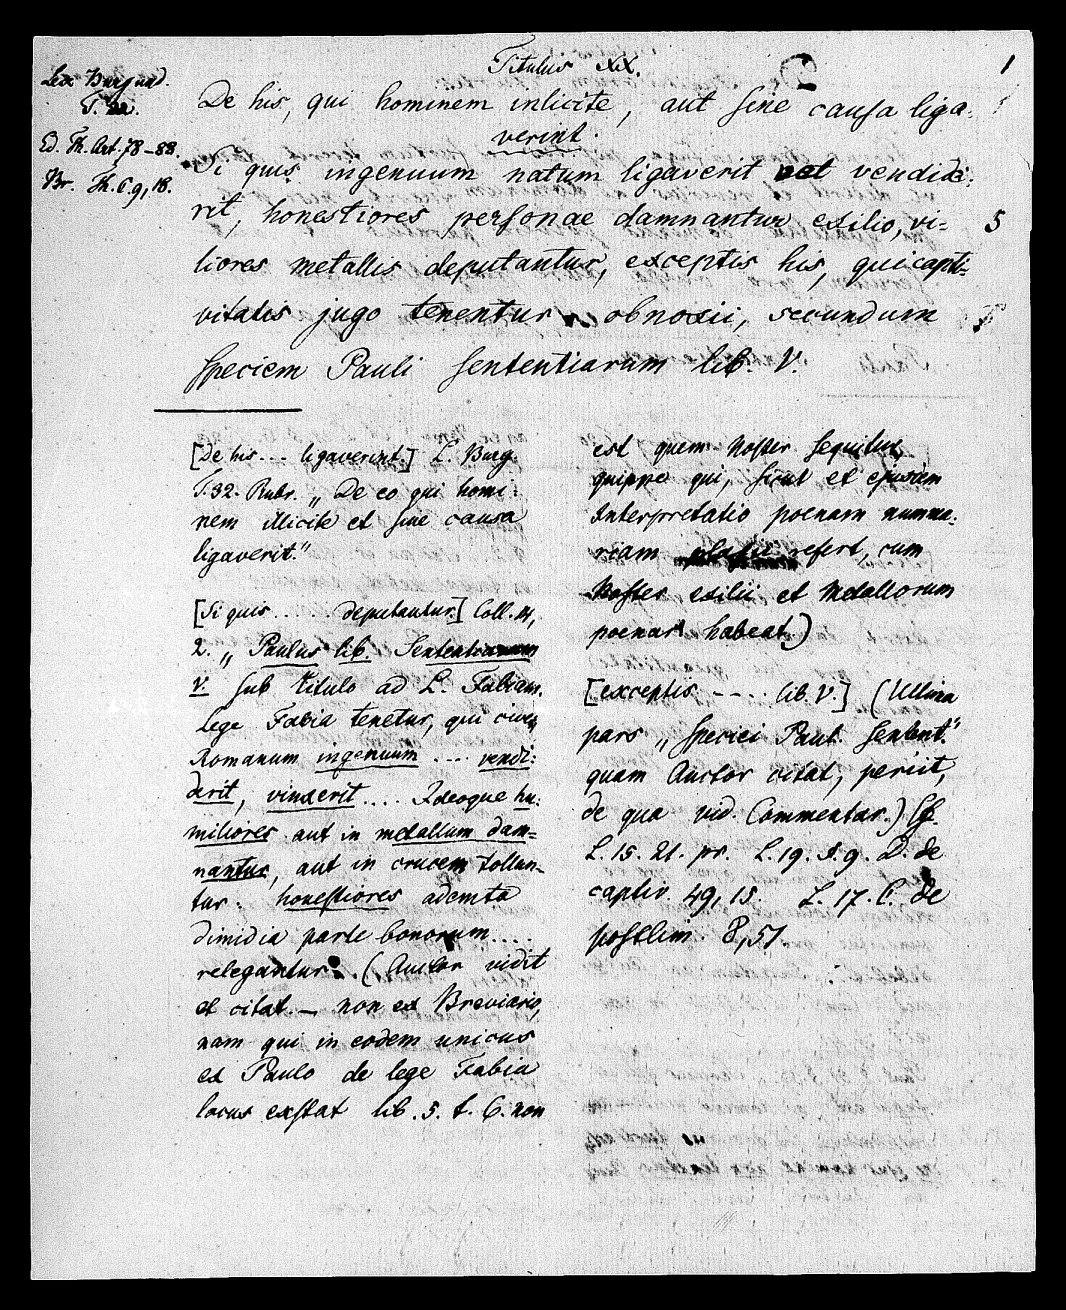 Titulus XIX.
1
Lex Burgund.
T. 32.
Ed. Th. Art. 78–83.
Br. Th. C. 9, 18.
De his, qui hominem inlicite, aut sine causa liga-
verint.
Si quis ingenuum natum ligaverit vel vendide-
rit, honestiores personae damnantur exilio, vi-
5
liores metallis deputantur, exceptis his, qui capti-
vitatis jugo tenentur obnoxii, secundum
speciem Pauli Sententiarum lib. V.
[De his ... ligaverint.] L. Burg.
T. 32. Rubr. „De eo qui homi-
nem illicite et sine causa
ligaverit"
[Si quis ..... deputantur.] Coll. 14,
2. „Paulus lib. Sententiarum
V. sub titulo ad L. Fabiam.
lege Fabia tenetur, qui civem
Romanum ingenuum .... vendi-
derit, vinxerit .... Ideoque hu-
miliores aut in metallum dam-
nantur, aut in crucem tollun-
tur; honestiores ademta
dimidia parte bonorum ....
relegantur. (Auctor vidit
et citat — non ex Breviario,
nam qui in eodem unicus
ex Paulo de lege Fabia
locus exstat lib. 5. t. 6. non
est quem Noster sequitur,
quippe qui, sicut et ejusdem
Interpretatio poenam numma-
riam refert, cum
Noster exilii et Metallorum
poenas habeat)
[exceptis ---- lib. V.] (Ultima
pars „speciei Pauli Sentent."
quam Auctor citat, periit,
de qua vid. Commentar.) Cf.
L. 15. 21. pr. L. 19. §. 9. D. de
captiv. 49, 15. L. 17. C. de
postlim. 8, 51.